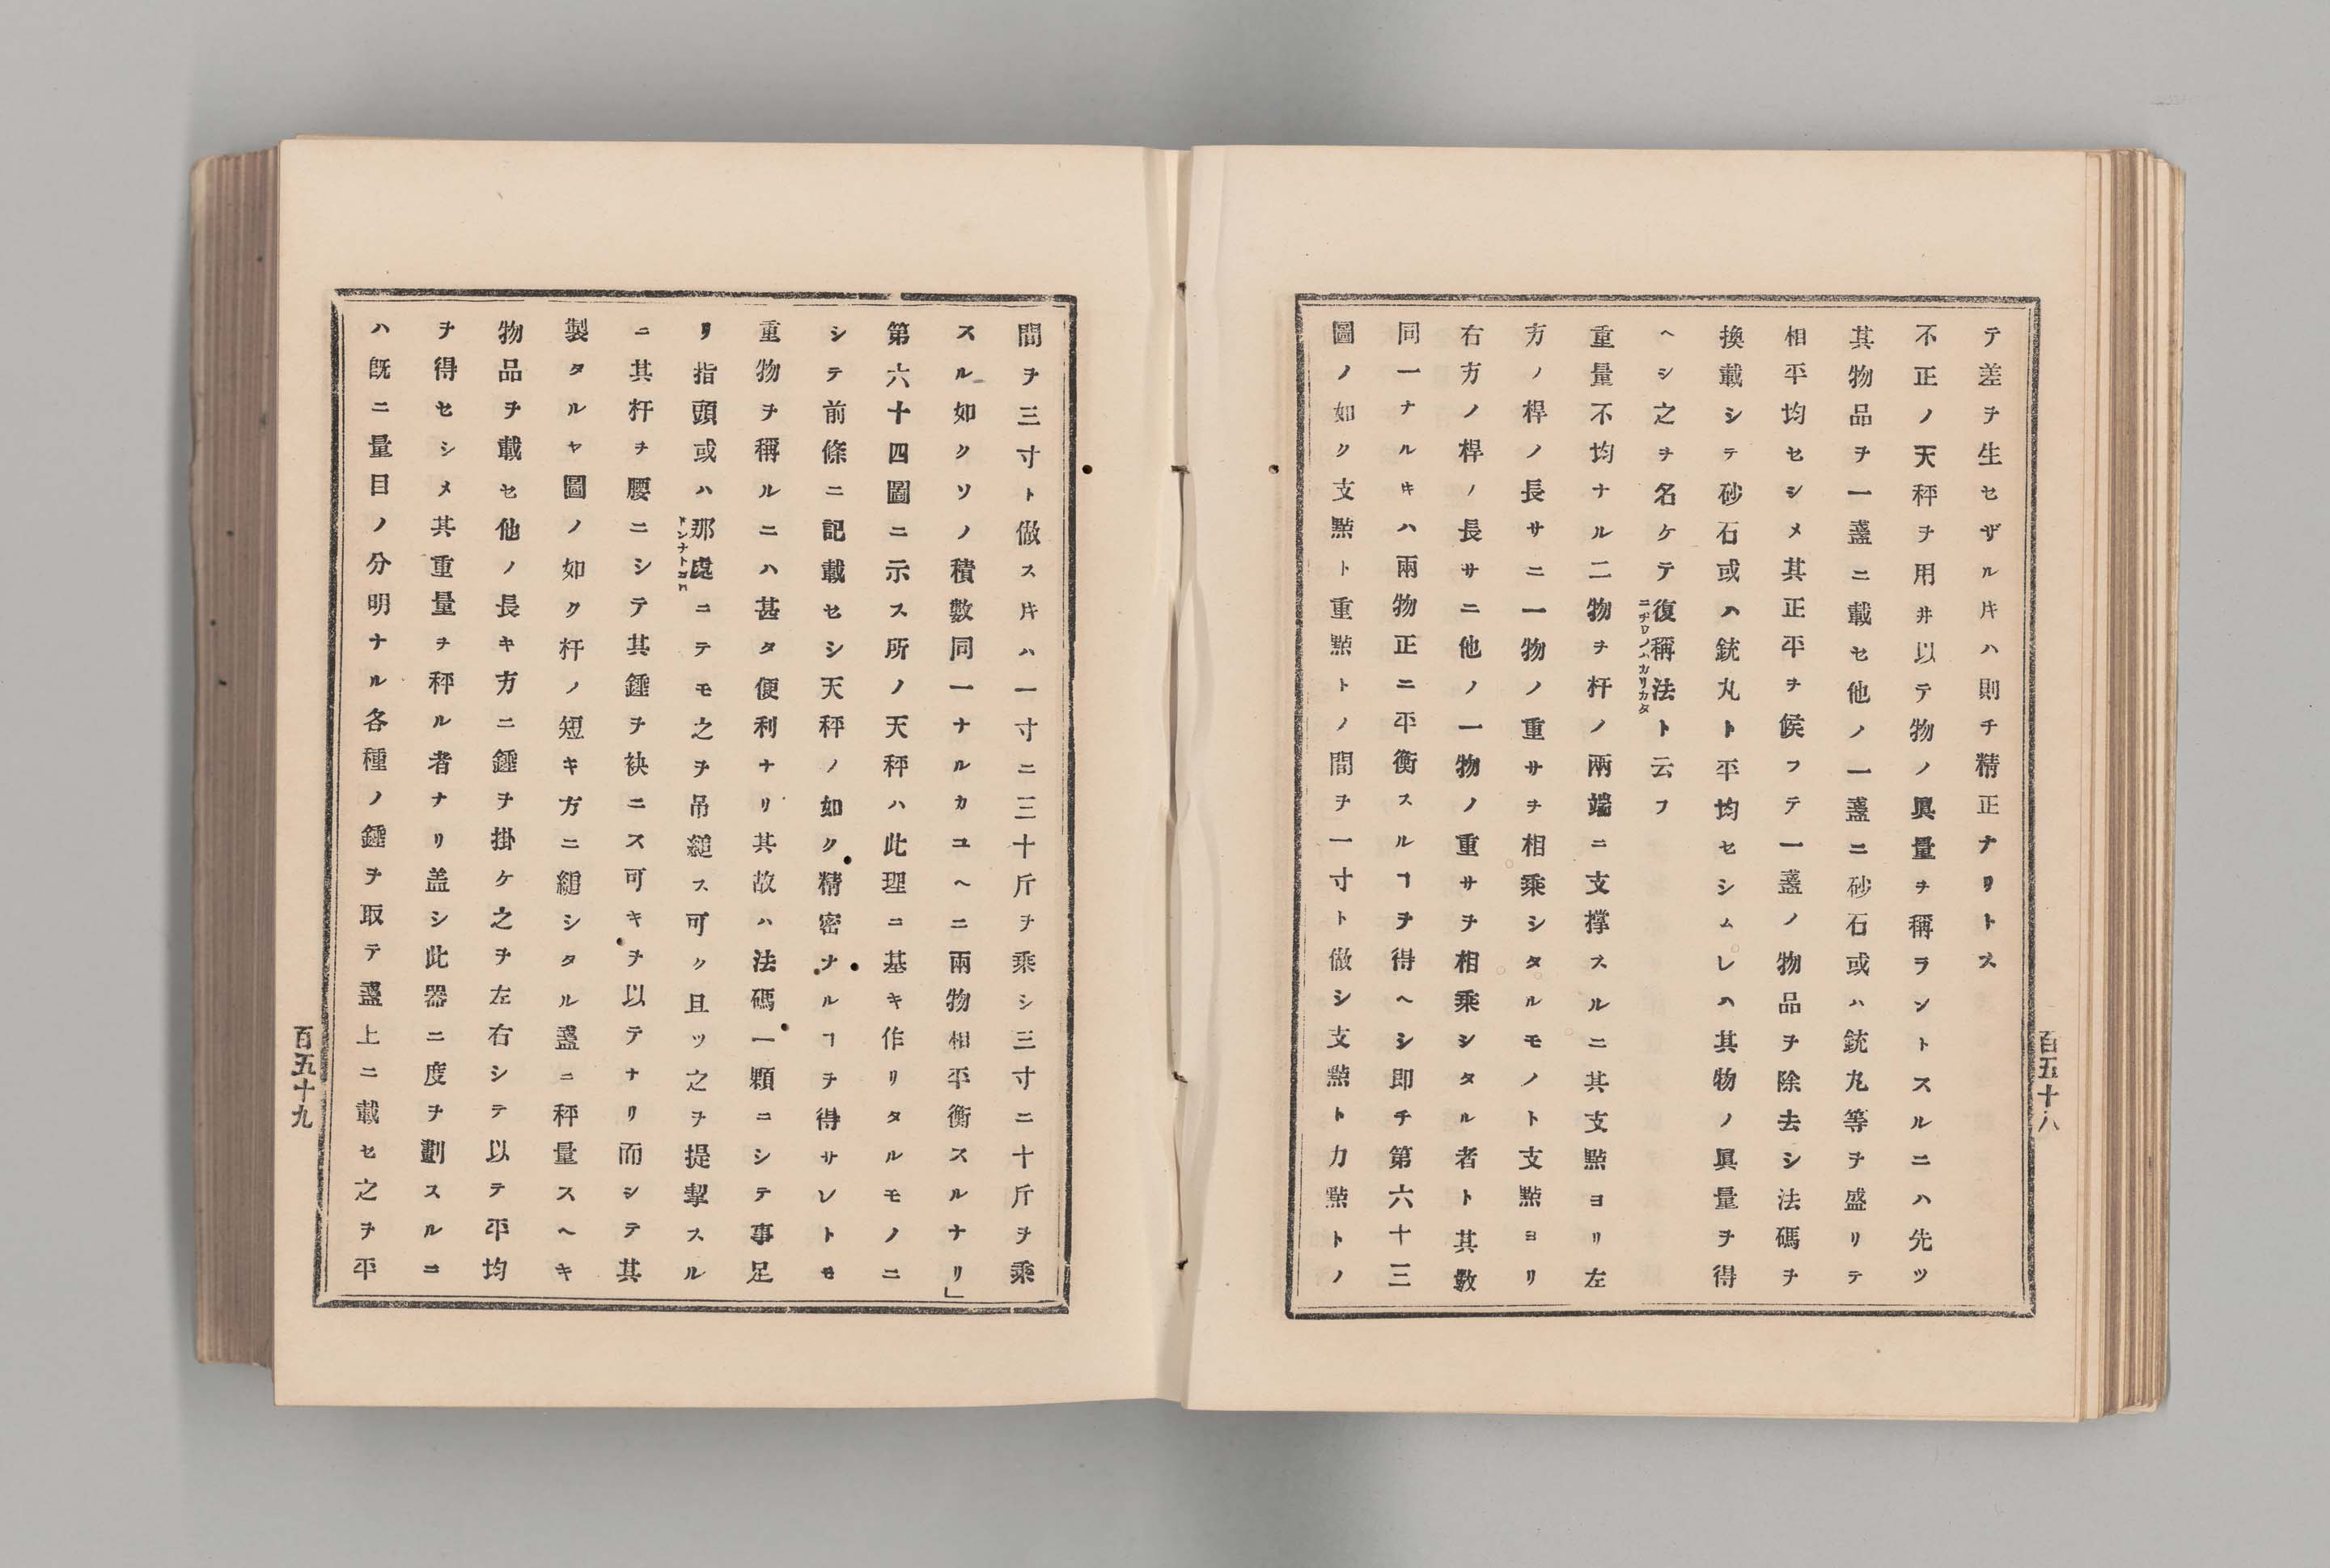 テ差ヲ生セザル𪜈ハ則チ精正ナリトス
不正ノ天秤ヲ用井以テ物ノ眞量ヲ稱ラントスルニハ先ツ
其物品ヲ一盞ニ載セ他ノ一盞ニ砂石或ハ銃丸等ヲ盛リテ
相平均セシメ其正平ヲ候フテ一盞ノ物品ヲ除去シ法碼ヲ
換載シテ砂石或ハ銃丸ト平均セシムレハ其物ノ眞量ヲ得
ヘシ之ヲ名ケテ復稱法ト云フ
ニヂウノハカリカタ
重量不均ナル二物ヲ杆ノ兩端ニ支撑スルニ其支點ヨリ左
方ノ桿ノ長サニ一物ノ重サヲ相乘シタルモノト支點ヨリ
右方ノ桿ノ長サニ他ノ一物ノ重サヲ相乘シタル者ト其數
同一ナルキハ兩物正ニ平衡スルヿヲ得ヘシ即チ第六十三
圖ノ如ク支點ト重點トノ間ヲ一寸ト做シ支點ト力點トノ
百五十八
間ヲ三寸ト做ス𪜈ハ一寸ニ三十斤ヲ乘シ三寸ニ十斤ヲ乘
スル如クソノ積數同一ナルカユヘニ兩物相平衡スルナリ」
第六十四圖ニ示ス所ノ天秤ハ此理ニ基キ作リタルモノニ
シテ前條ニ記載セシ天秤ノ如ク精密ナルヿヲ得サレトモ
重物ヲ稱ルニハ甚タ便利ナリ其故ハ法碼一顆ニシテ事足
リ指頭或ハ那處ニテモ之ヲ吊縋ス可ク且ツ之ヲ提挈スル
ドンナトコロ
ニ其杆ヲ腰ニシテ其錘ヲ袂ニス可キヲ以テナリ而シテ其
製タルヤ圖ノ如ク杆ノ短キ方ニ縋シタル盞ニ秤量スヘキ
物品ヲ載セ他ノ長キ方ニ錘ヲ掛ケ之ヲ左右シテ以テ平均
ヲ得セシメ其重量ヲ秤ル者ナリ盖シ此器ニ度ヲ劃スルニ
ハ既ニ量目ノ分明ナル各種ノ錘ヲ取テ盞上ニ載セ之ヲ平
百五十九